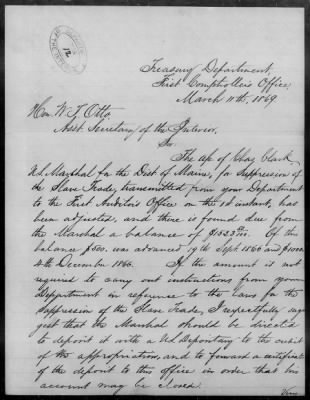 12
Treasury Department,
First Comptroller's Office,
March 11th, 1869
Hon. W. T. Otto,
Asst Secretary of the Interior,
Sir
The a/c of Chas. Clark
U.S. Marshal for the Dist of Maine, for Suppression of
the Slave Trade, transmitted from your Department
to the First Auditor's Office on the 1st instant, has
been adjusted, and there is found due from
the Marshal a balance of Of this
balance $500. was advanced 19th Sept. 1866 and
4th December 1866. If the amount is not
required to carry out instructions from your
Department in reference to the laws for the
suppression of the Slave Trade, I respectfully sug
gest that the Marshal should be directed
to deposit it with a U.S. Depositary to the credit
of the appropriation, and to forward a certificate
of the deposit to this office in order that his
account may be closed.
Very